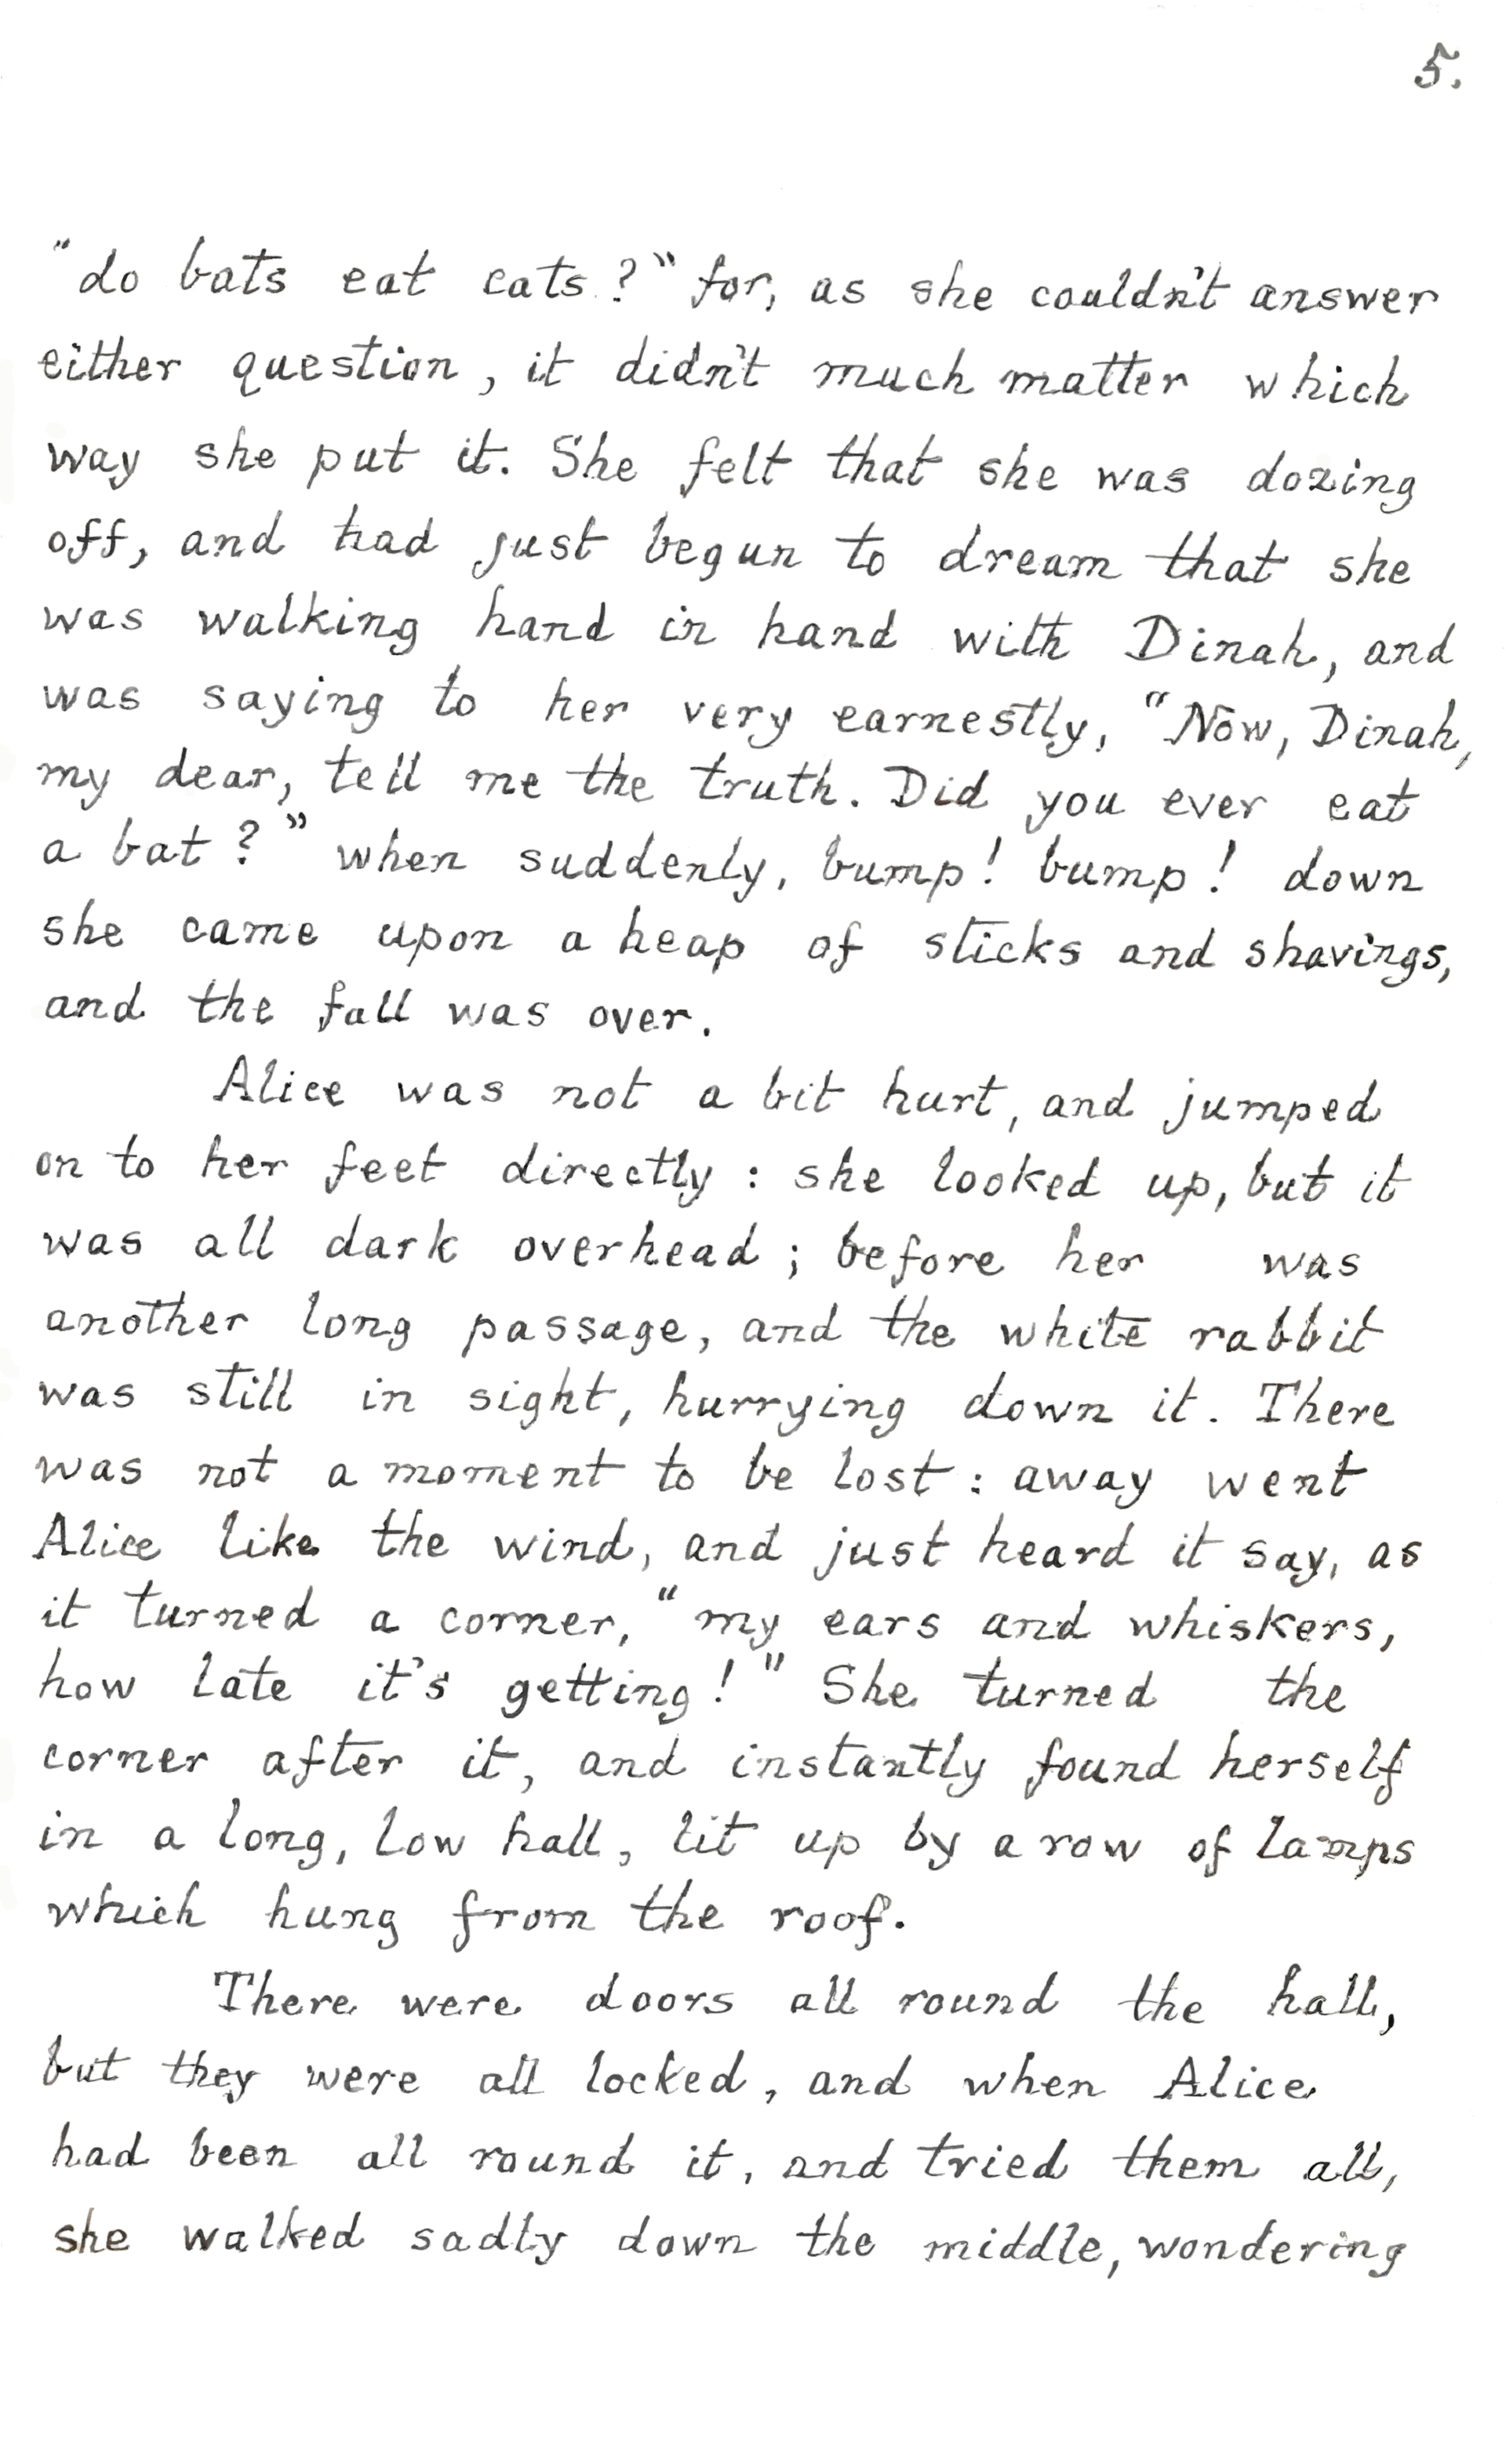 5.
"do bats eat cats?" for, as she couldn't answer
either question, it didn't much matter which
way she put it. She felt that she was dozing
off, and had just begun to dream that she
was walking hand in hand with Dinah, and
was saying to her very earnestly, "Now, Dinah,
my dear, tell me the truth. Did you ever eat
a bat?" when suddenly, bump! bump! down
she came upon a heap of sticks and shavings,
and the fall was over.
Alice was not a bit hurt, and jumped
on to her feet directly: she looked up, but it
was all dark overhead; before her was
another long passage, and the white rabbit
was still in sight, hurrying down it. There
was not a moment to be lost: away went
Alice like the wind, and just heard it say, as
it turned a corner, "my ears and whiskers,
how late it's getting!" She turned the
corner after it, and instantly found herself
in a long, low hall, lit up by a row of lamps
which hung from the roof.
There were doors all round the hall,
but they were all locked, and when Alice
had been all round it, and tried them all,
she walked sadly down the middle, wondering